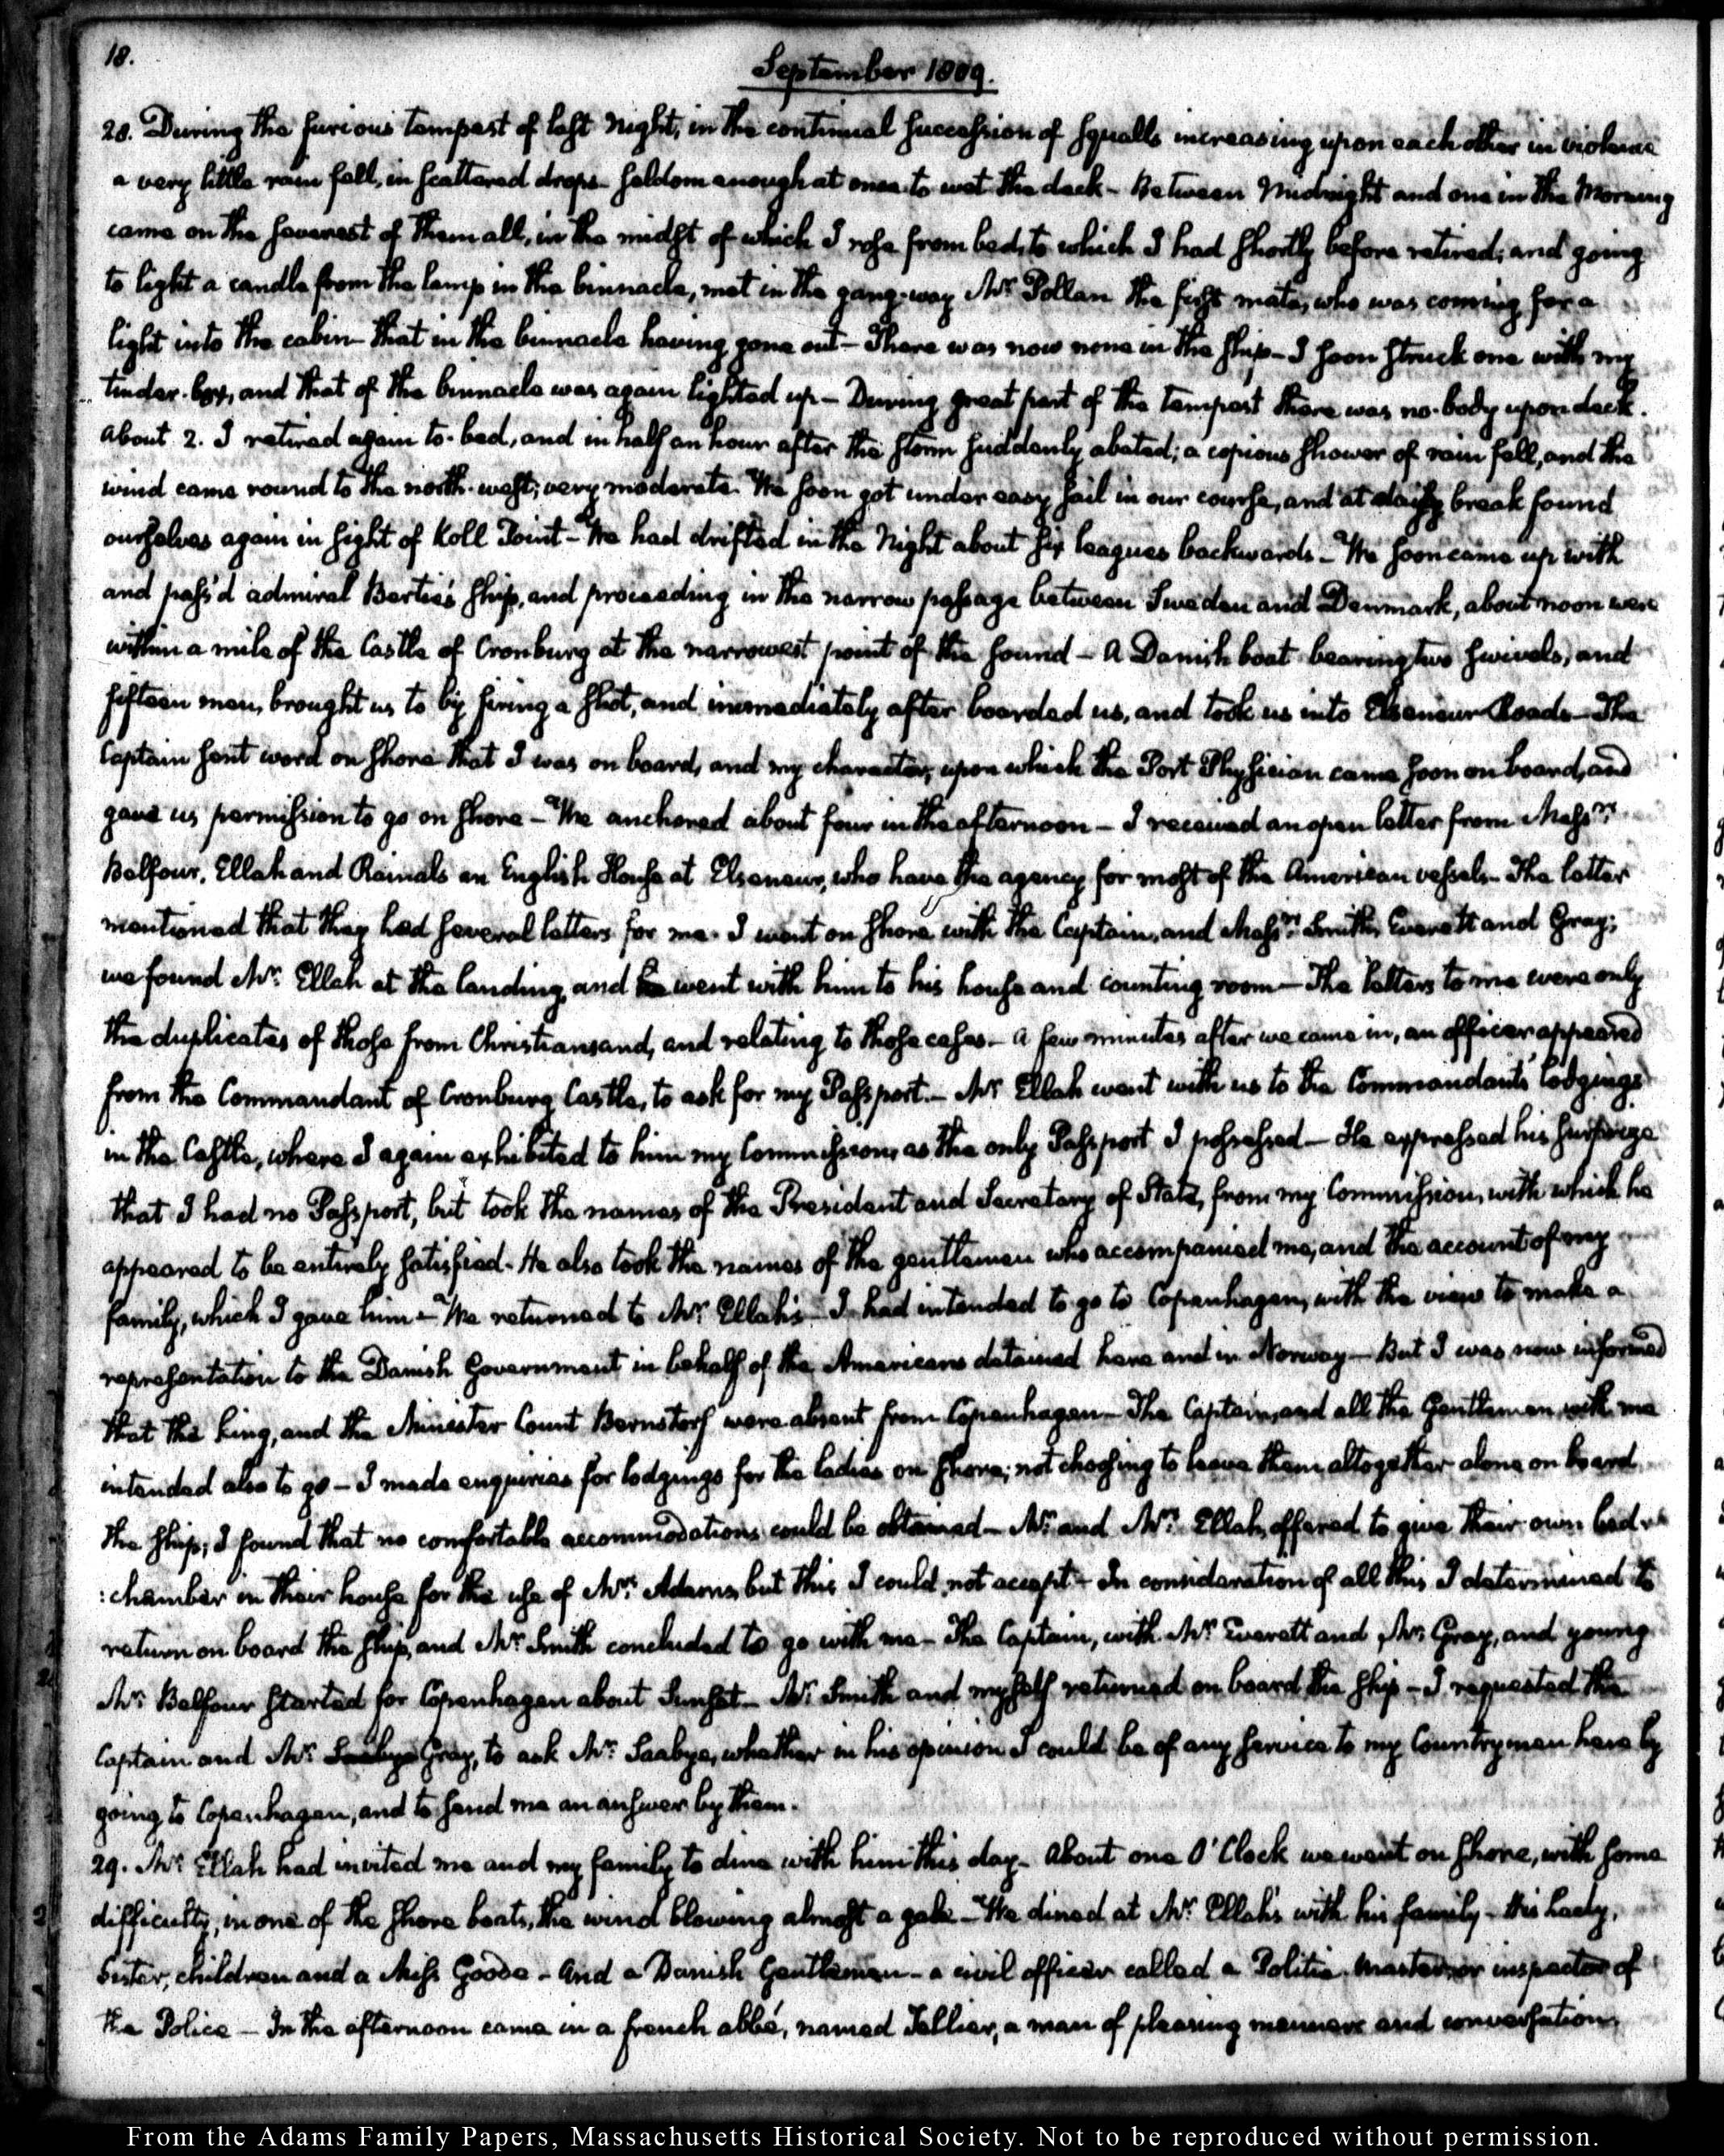 18.
September 1809.
28. During the furious tempest of last Night, in the continual succession of squalls increasing upon each other in violence
a very little rain fell, in scattered drops - seldom enough at once to wet the deck - Between Midnight and one in the Morning
came on the severest of them all, in the midst of which I rose from bed, to which I had shortly before retired; and going
to light a candle from the lamp in the binnacle, met in the gang-way Mr. Pollan the first mate, who was coming for a
light into the cabin - that in the binnacle having gone out - There was now none in the ship - I soon struck one with my
tinder-box, and that of the binnacle was again lighted up - During great part of the tempest there was no-body upon deck.
About 2. I retired again to-bed, and in half an hour after the storm suddenly abated; a copious shower of rain fell, and the
wind came round to the north-west; very moderate. We soon got under easy sail in our course, and at day break found
ourselves again in sight of Koll Point - We had drifted in the Night about six leagues backwards - We soon came up with
and pass'd admiral Bertie's ship, and proceeding in the narrow passage between Sweden and Denmark, about noon were
within a mile of the Castle of Cronburg at the narrowest point of the sound - A Danish boat bearing two swivels, and
fifteen men, brought us to by firing a shot, and immediately after boarded us, and took us into Elseneur Roads - The
Captain sent word on shore that I was on board, and my character, upon which the Port Physician came soon on board, and
gave us permission to go on shore - We anchored about four in the afternoon - I received an open letter from Messrs.
Balfour, Ellah and Rainals an English House at Elseneur, who have the agency for most of the American vessels - The letter
mentioned that they had several letters for me. I went on shore with the Captain, and Messrs. Smith, Everett and Gray;
we found Mr. Ellah at the landing, and went with him to his house and counting room - The letters to me were only
the duplicates of those from Christiansand, and relating to those cases - A few minutes after we came in, an officer appeared
from the Commandant of Cronburg Castle, to ask for my Passport. - Mr. Ellah went with us to the Commandant's lodgings
in the Castle, where I again exhibited to him my Commission, as the only Passport I possessed - He expressed his surprize
that I had no Passport, but took the names of the President and Secretary of State, from my Commission, with which he
appeared to be entirely satisfied - He also took the names of the gentlemen who accompanied me, and the account of my
family, which I gave him - We returned to Mr. Ellah's - I had intended to go to Copenhagen, with the view to make a
representation to the Danish Government in behalf of the Americans detained here and in Norway - But I was now informed
that the king, and the Minister Count Bernstorf were absent from Copenhagen - The Captain, and all the Gentlemen with me
intended also to go - I made enquiries for lodgings for the ladies on shore; not choosing to leave them altogether alone on board
the ship; I found that no comfortable accommodations could be obtained - Mr. and Mrs. Ellah, offered to give their own bed-
:chamber in their house for the use of Mrs. Adams, but this I could not accept - In consideration of all this I determined to
return on board the ship, and Mr. Smith concluded to go with me - The Captain, with Mr. Everett and Mr. Gray, and young
Mr. Balfour started for Copenhagen about Sunset - Mr. Smith and myself returned on board the ship - I requested the
Captain and Mr. Saabye Gray, to ask Mr. Saabye, whether in his opinion I could be of any service to my Countrymen here by
going to Copenhagen, and to send me an answer by them.
29. Mr. Ellah had invited me and my family to dine with him this day - About one O'Clock we went on shore, with some
difficulty, in one of the shore boats, the wind blowing almost a gale - We dined at Mr. Ellah's with his family - His Lady,
Sister, children and a Miss Goode - And a Danish Gentleman - a civil officer called a Politie-Master, or inspector of
the Police - In the afternoon came in a french abbé, named Tellier, a man of pleasing manners and conversation,
From the Adams Family Papers, Massachusetts Historical Society. Not to be reproduced without permission.